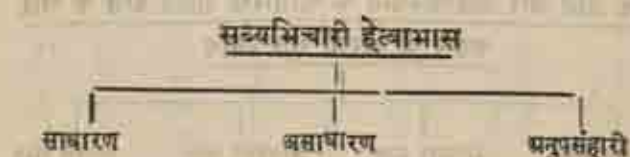 सव्यभिचारी हेत्वाभास
साधारण असाधारण अनुपसंहारी